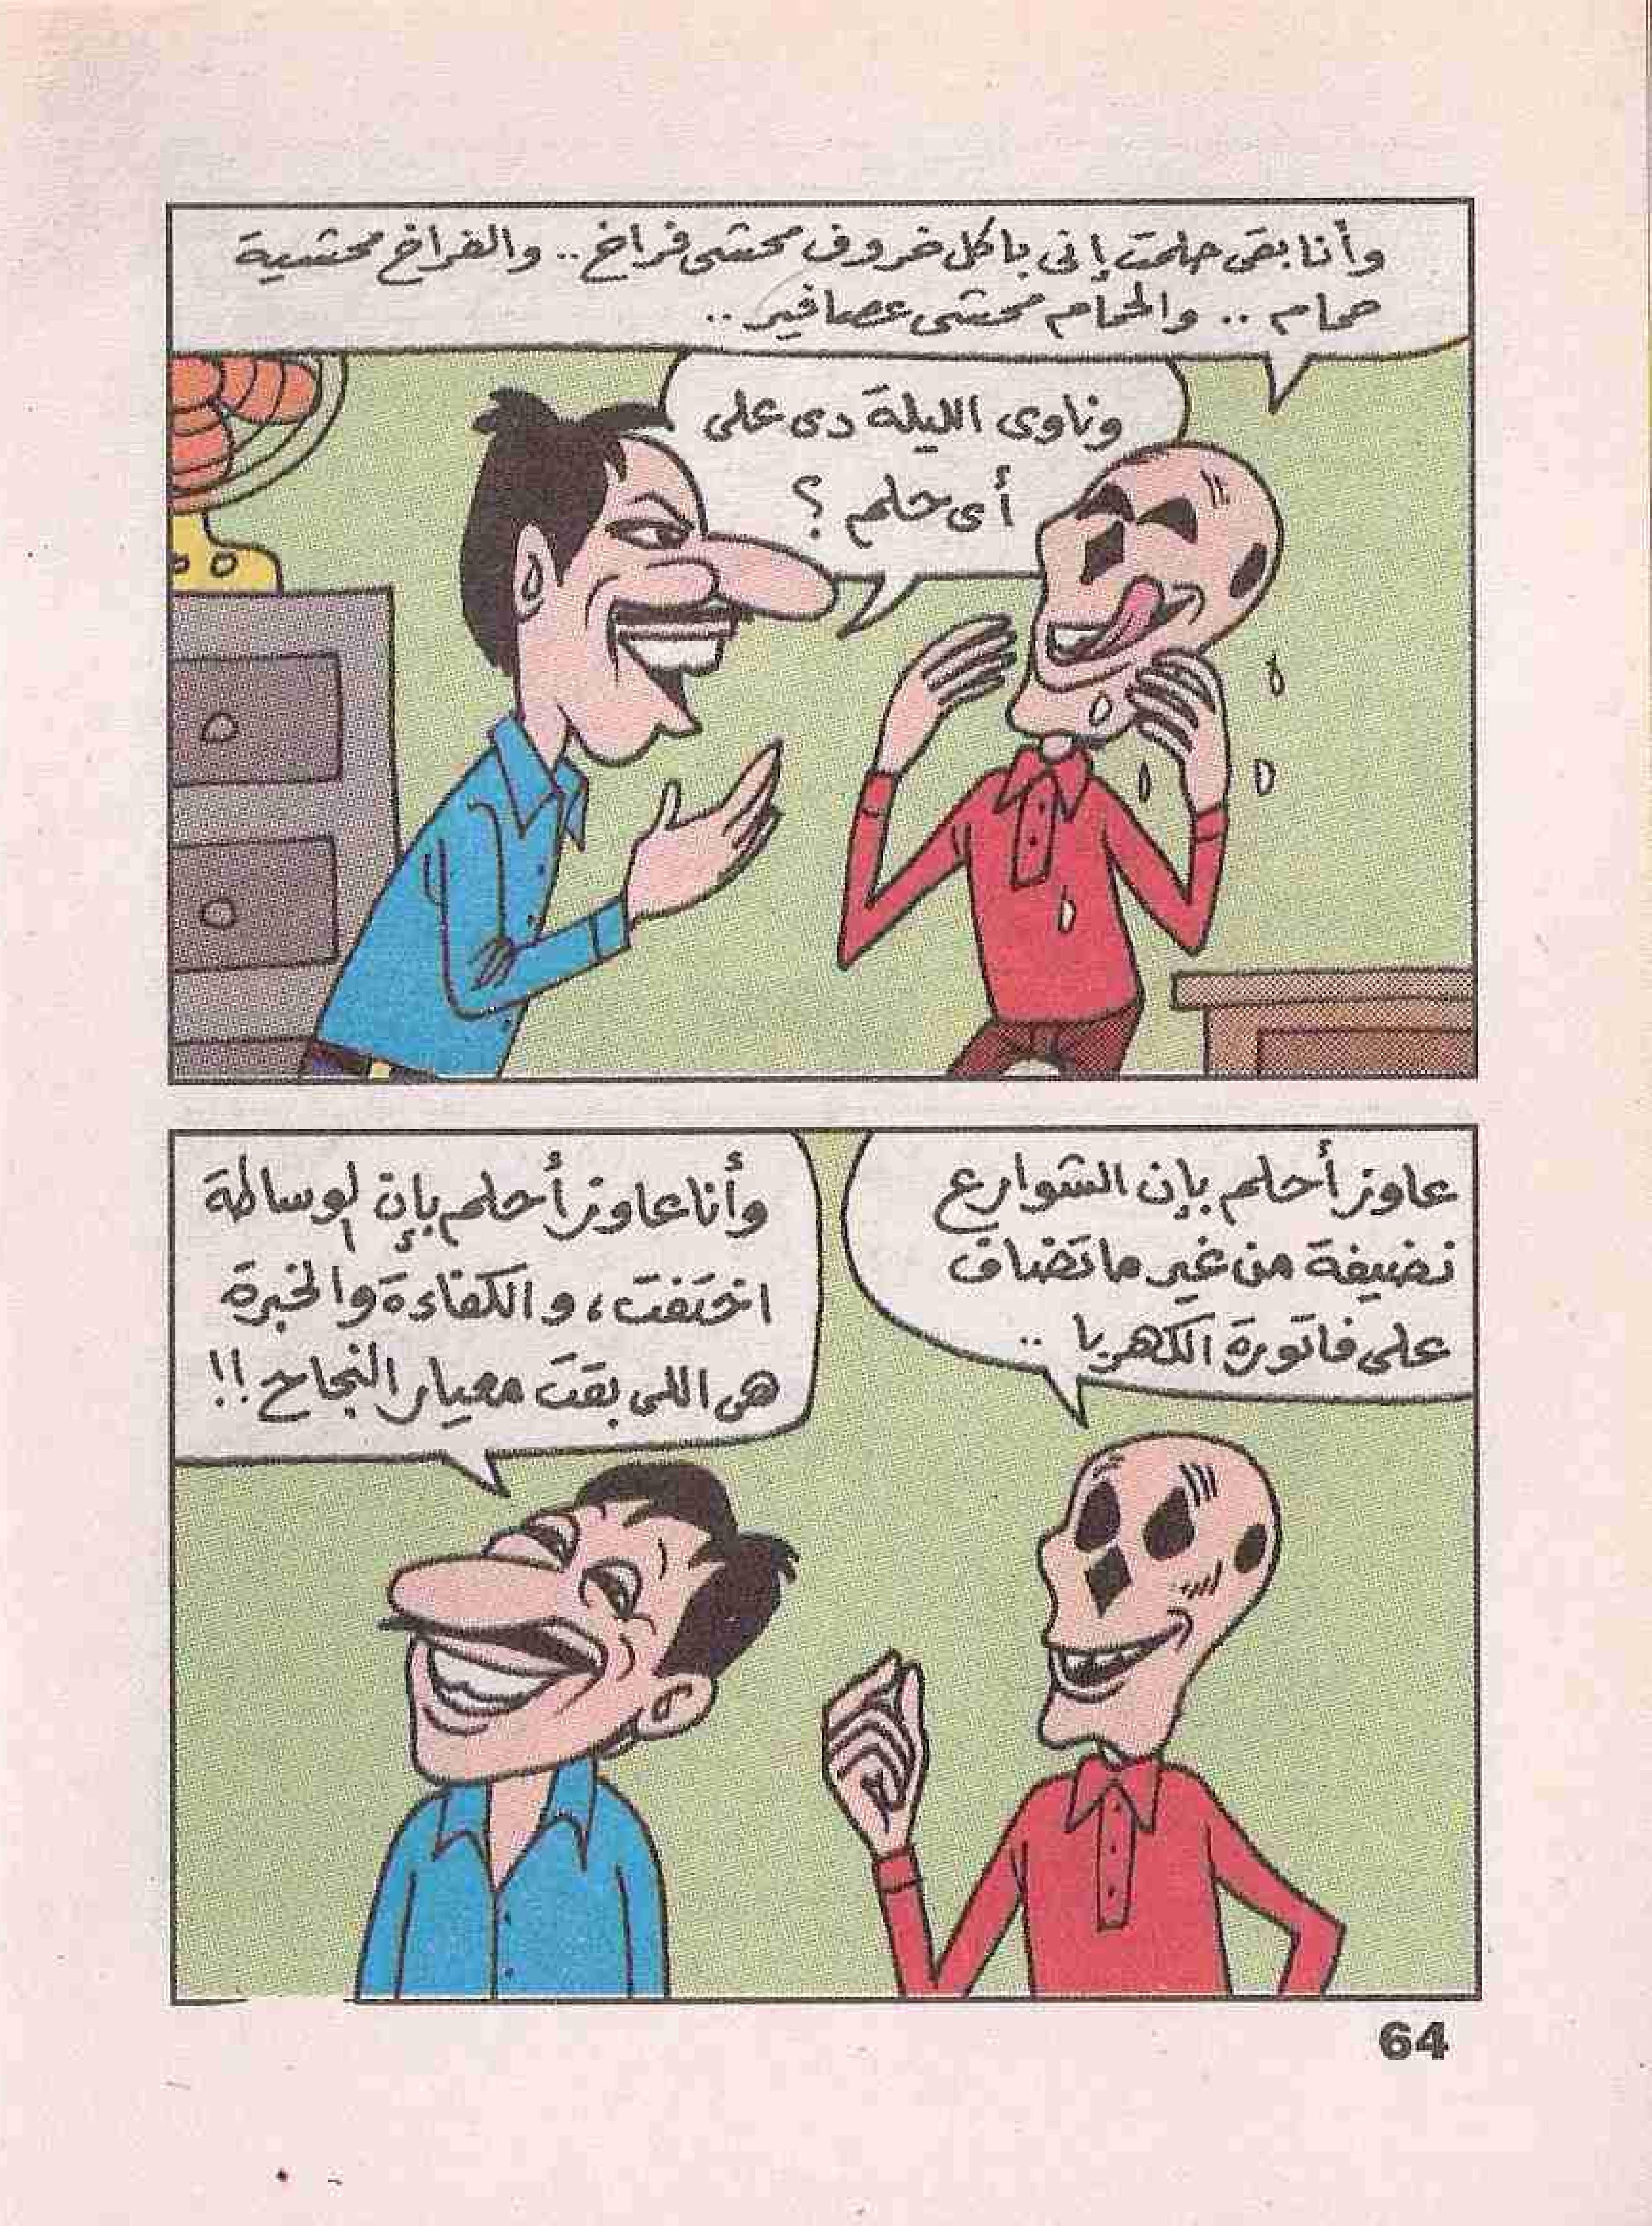 وأنا بقى حلمت إنى باكل خروف محشى فراخ.. والفراخ محشية
حمام .. والحمام محشى عصافير ..
وناوى الليلة دى على
أى حلم ؟
عاوز أحلم بإن الشوارع
نضيفة من غير ما تضاف
على فاتورة الكهربا ..
وأنا عاوز أحلم بإن الوساطة
اختفت، والكفاءة والخبرة
هى اللى بقت معيار النجاح !!
64